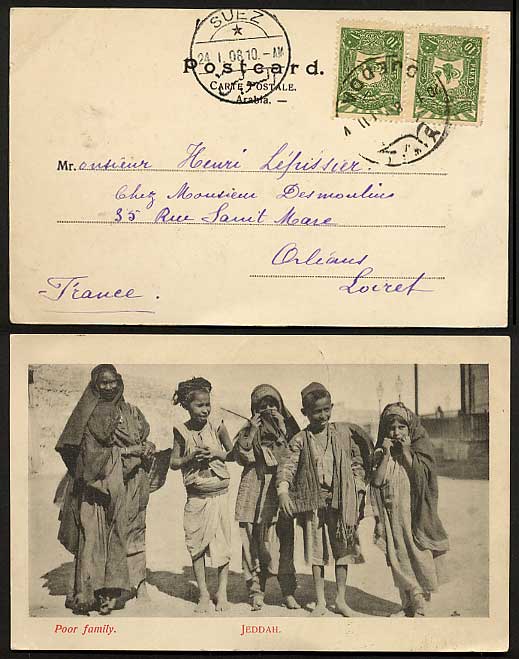 SUEZ
24 I 08 10.-AM
Postcard.
CARTE POSTALE.
Arabia. —
10 10
Mr.onsieur Henri Lépissier.
Chez Monsieur Desmoulins
35 Rue Saint Marc
Orléans
France. Loiret
Poor family. JEDDAH.